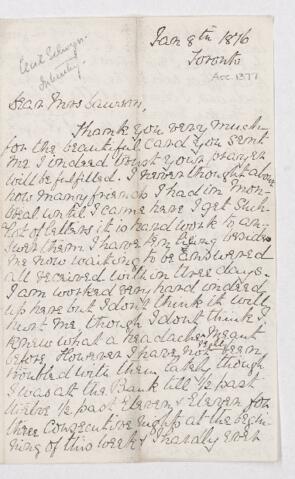 Jan 8th 1876
Toronto
Acc. 1377
Dear Mrs Dawson,
Thank you very much
for the beautiful card you sent
me I indeed trust your prayer
will be fulfilled. I never thought about
how many friends I had in Mon-
treal until I came here I get such
lot of letters it is hard work to an-
swer them I have ten lying beside
me now waiting to be answered
all received within three days.
I am worked very hard indeed
up here but I don't think it will
hurt me, though I don't think I
knew what a headache meant
before However I have not been
troubled with them lately though
I was at the Bank till ½ past
twelve ½ past Eleven & Eleven for
three Consecutive nights at the begin-
ning of this week & I hardly ever